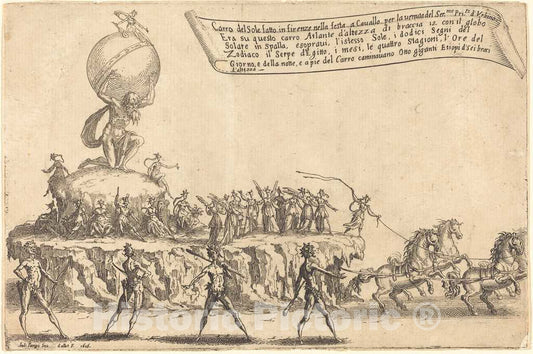 Carro del Sole fatto in firenze nella festa a Cauallo, per la uenuta del Ser.mo Prī.e d'Vrbino
Era su questo carro Atlante d'altezza di braccia 12. con il globo
Solare in Spalla, e sopraui, l'istesso Sole, i dodici Segni del
Zodiaco il Serpe d'Egitto, i mesi, le quattro Stagioni, l'Ore del
Giorno, e della notte, e a pie del Carro caminauano Otto giganti Etiopi d'sei bracc
d'altezza
Historic Pictoric ®
Iul. Parigi Inu. Callot F. 1616.